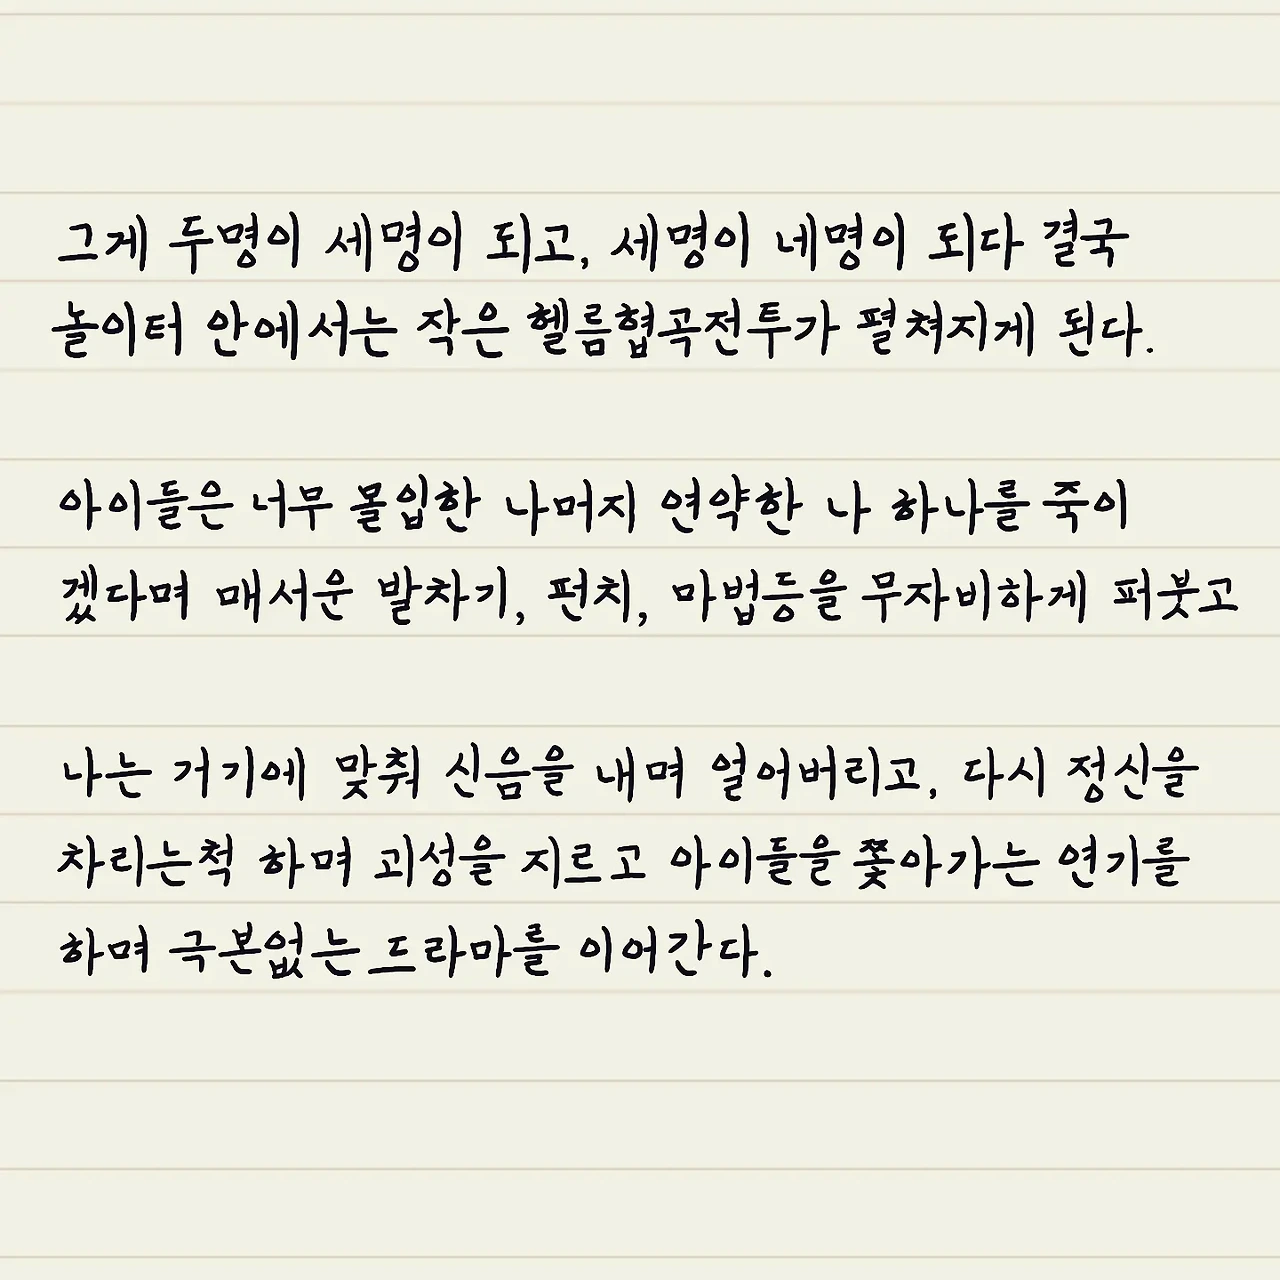 그게 두명이 세명이 되고, 세명이 네명이 되다 결국
놀이터 안에서는 작은 헬름협곡전투가 펼쳐지게 된다.
아이들은 너무 몰입한 나머지 연약한 나 하나를 죽이
겠다며 매서운 발차기, 펀치, 마법등을 무자비하게 퍼붓고
나는 거기에 맞춰 신음을 내며 얼어버리고, 다시 정신을
차리는척 하며 괴성을 지르고 아이들을 쫓아가는 연기를
하며 극본없는 드라마를 이어간다.